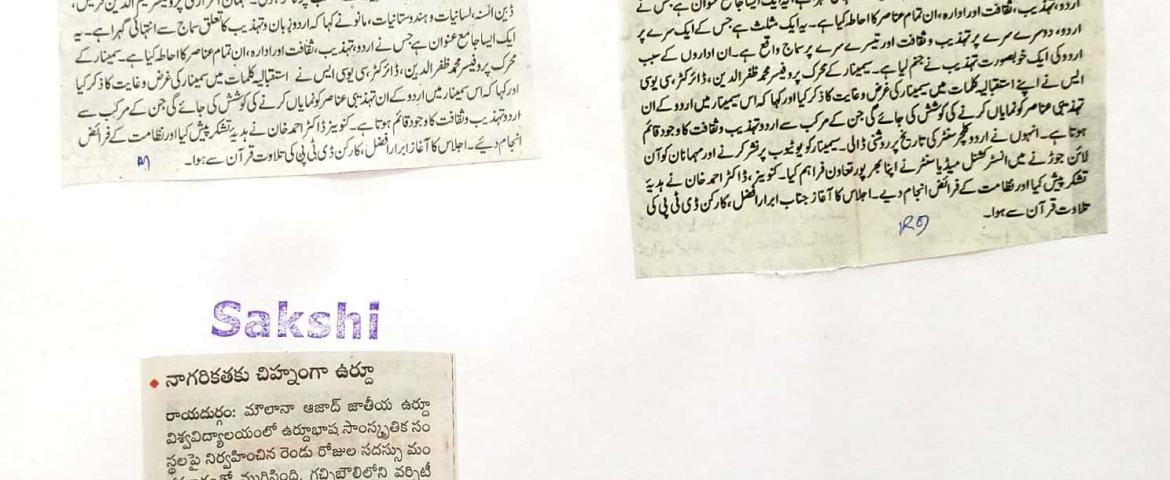 ڈین السنہ، لسانیات و ہندوستانیات، مانو نے کہا کہ اردو زبان و تہذیب کا تعلق سماج سے انتہائی گہرا ہے۔ یہ
ایک ایسا جامع عنوان ہے جس نے اردو، تہذیب، ثقافت اور ادارہ، ان تمام عناصر کا احاطہ کیا ہے۔ سیمینار کے
محرک پروفیسر محمد ظفر الدین، ڈائرکٹر، سی یو سی ایس نے استقبالیہ کلمات میں سمینار کی غرض و غایت کا ذکر کیا
اور کہا کہ اس سمینار میں اردو کے ان تہذیبی عناصر کو نمایاں کرنے کی کوشش کی جائے گی جن کے مرکب سے
اردو تہذیب و ثقافت کا وجود قائم ہوتا ہے۔ کنوینر ڈاکٹر احمد خان نے ہدیہ تشکر پیش کیا اور نظامت کے فرائض
انجام دیئے۔ اجلاس کا آغاز ابرار افضل، کارکن ڈی ٹی پی کی تلاوت قرآن سے ہوا۔
اردو، تہذیب، ثقافت اور ادارہ، ان تمام عناصر کا احاطہ کیا ہے۔ یہ ایک مثلث ہے جس کے ایک سرے پر
اردو، دوسرے سرے پر تہذیب و ثقافت اور تیسرے سرے پر سماج واقع ہے۔ ان اداروں کے سبب
اردو کی ایک خوبصورت تہذیب نے جنم لیا ہے۔ سیمینار کے محرک پروفیسر محمد ظفر الدین، ڈائرکٹر، سی یو سی
ایس نے اپنے استقبالیہ کلمات میں سمینار کی غرض و غایت کا ذکر کیا اور کہا کہ اس سمینار میں اردو کے ان
تہذیبی عناصر کو نمایاں کرنے کی کوشش کی جائے گی جن کے مرکب سے اردو تہذیب و ثقافت کا وجود قائم
ہوتا ہے۔ انہوں نے اردو کلچر سنٹر کی تاریخ پر روشنی ڈالی۔ سیمینار کو یوٹیوب پر نشر کرنے اور مہمانان کو آن
لائن جوڑنے میں انسٹرکشنل میڈیا سنٹر نے اپنا بھرپور تعاون فراہم کیا۔ کنوینر، ڈاکٹر احمد خان نے ہدیۂ
تشکر پیش کیا اور نظامت کے فرائض انجام دیے۔ اجلاس کا آغاز جناب ابرار افضل، کارکن ڈی ٹی پی کی
تلاوت قرآن سے ہوا۔
Sakshi
నాగరికతకు చిహ్నంగా ఉర్దూ
రాయదుర్గం: మౌలానా ఆజాద్ జాతీయ ఉర్దూ
విశ్వవిద్యాలయంలో ఉర్దూభాష సాంస్కృతిక సం
స్థలపై నిర్వహించిన రెండు రోజుల సదస్సు మం
ముగిసింది. గచ్చిబౌలిలోని వర్సిటీ